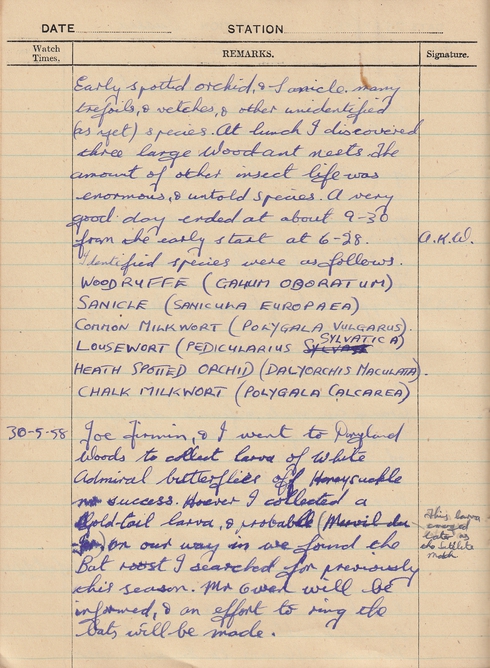 DATE STATION
Watch Times. REMARKS. Signature.
Early spotted orchid, & Sanicle. many
trefoils, & vetches, & other unidentified
(as yet) species. At lunch I discovered
three large Wood ant neets. The
amount of other insect life was
enormous, & untold species. A very
good day ended at about 9-30
from the early start at 6-28. A.K.W.
Identified species were as follows.
WOODRUFFE (GALIUM OBORATUM)
SANICLE (SANICULA EUROPAEA)
COMMON MILKWORT (POLYGALA VULGARUS).
LOUSEWORT (PEDICULARIUS SYLVATICA)
HEATH SPOTTED ORCHID (DALYORCHIS MACULATA).
CHALK MILKWORT (POLYGALA CALCAREA)
30-5-58 Joe Firmin, & I went to Donyland
Woods to collect larva of White
Admiral butterflies off Honeysuckle
no success. However I collected a
Gold-tail larva, & probable
on our way in we found the
Bat roost I searched for previously
this season. Mr Gwen will be
informed, & an effort to ring the
bats will be made.
This larva
emerged
later as
the Satellite
moth